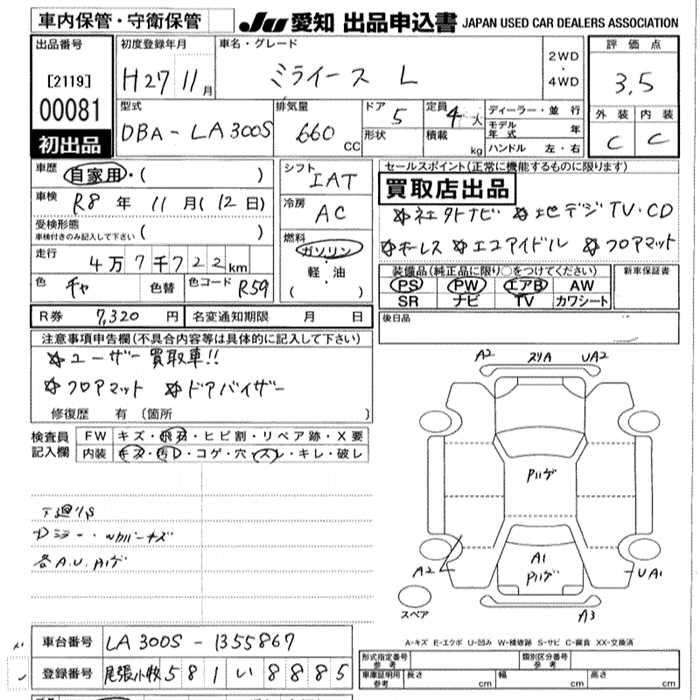 車内保管・守衛保管
JU 愛知 出品申込書 JAPAN USED CAR DEALERS ASSOCIATION
出品番号
[2119]
00081
初出品
初度登録年月
H27 11月
車名・グレード
ミライース L
2WD
・
4WD
評価点
3.5
型式
DBA-LA300S
排気量
660 CC
ドア
5
形状
定員
4人
積載
kg
ディーラー・並行
モデル年式 年
ハンドル 左・右
外装 内装
C C
車歴 自家用・( )
車検 R8年 11月(12日)
受検形態
車検付きのみ記入して下さい ( )
走行 4万7千722km
色 チャ 色替 色コード R59
R券 7,320円 名変通知期限 月 日
シフト
IAT
冷房
AC
燃料
ガソリン
・
軽・油
( )
セールスポイント(正常に機能するものに限ります)
買取店出品
☆社外ナビ ☆地デジTV・CD
☆キーレス ☆エコアイドル ☆フロアマット
装備品(純正品に限り○をつけてください)
PS PW エアB AW
SR ナビ TV カワシート
新車保証書
後日品
注意事項申告欄(不具合内容等は具体的に記入して下さい)
☆ユーザー買取車!!
☆フロアマット ☆ドアバイザー
修復歴 有 (箇所 )
検査員記入欄
FW キズ・飛石・ヒビ割・リペア跡・X要
内装 キズ・汚レ・コゲ・穴・スレ・キレ・破レ
下廻りS
各A.U.Pハゲ
A2 スリA UA2
Pハゲ
A1
Pハゲ
A2 UA1
スペア
A3
A-キズ E-エクボ U-凹み W-補修跡 S-サビ C-腐食 XX-交換済
車台番号 LA300S-1355867
登録番号 尾張小牧 581 い 8885
形式指定番号 参考
類別区分番号 参考
車庫証明用 参考 長さ cm 幅 cm 高さ cm